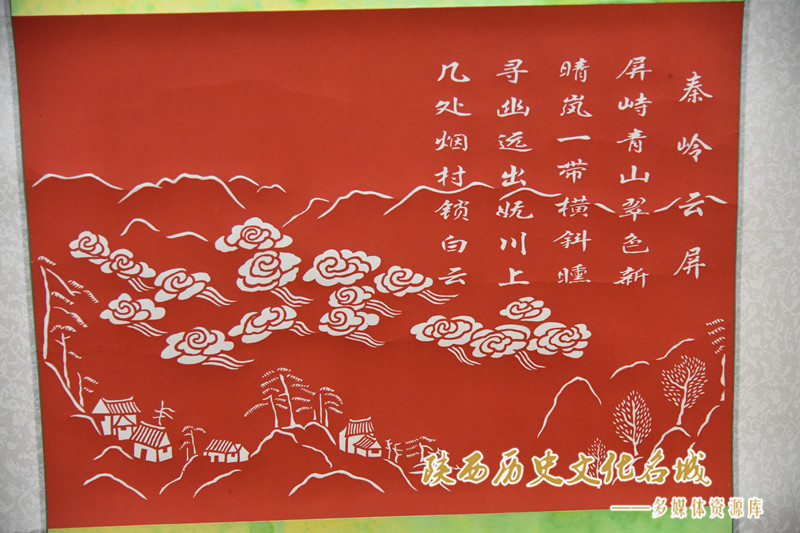 秦岭云屏
屏峙青山翠色新
晴岚一带横斜曛
寻幽远出妩川上
几处烟村锁白云
陕西历史文化名城
——多媒体资源库